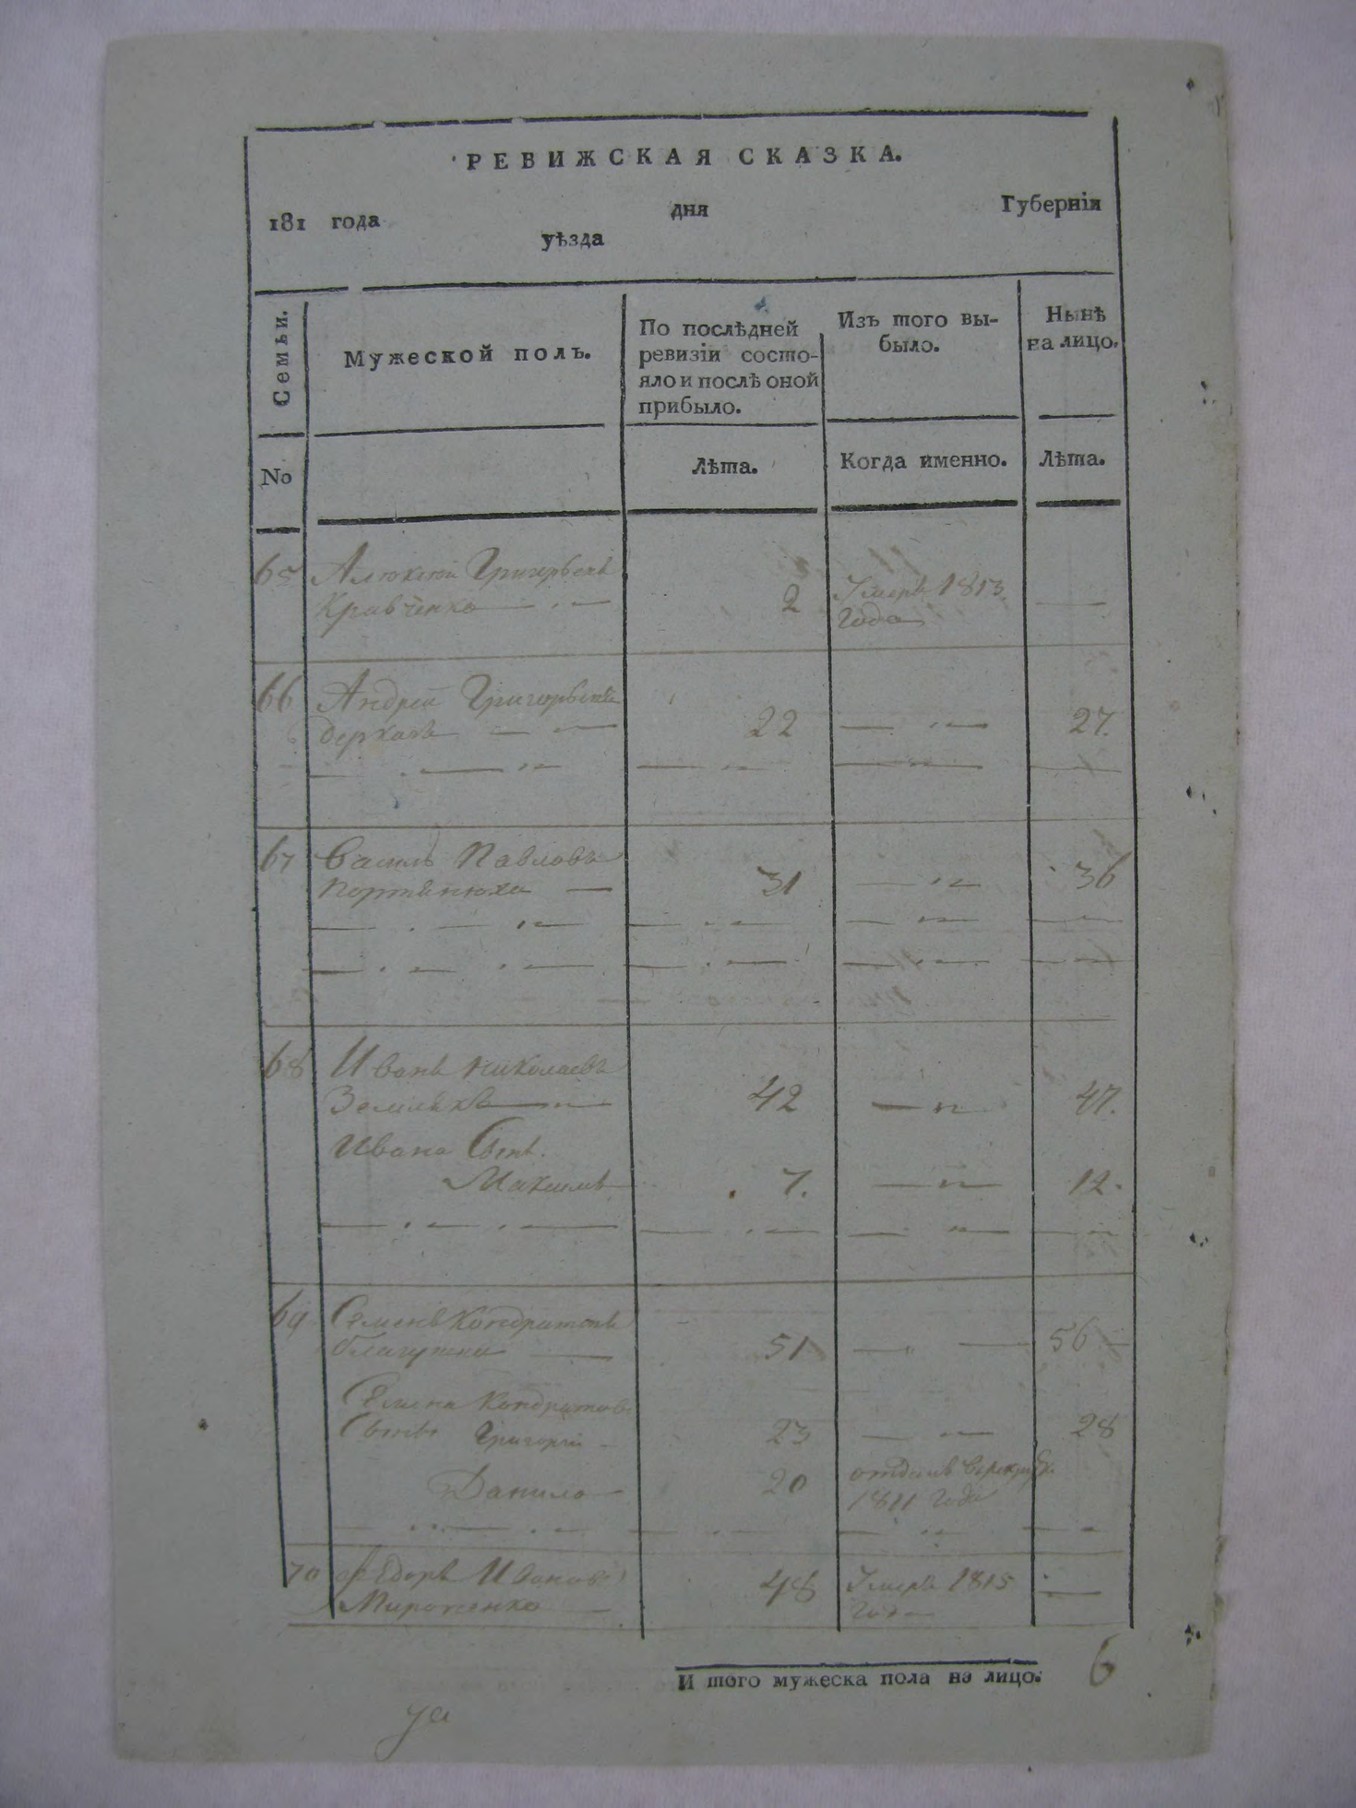 РЕВИЖСКАЯ СКАЗКА.
181 года дня Губернія
уѣзда
Семьи.
Мужеской полъ.
По послѣдней ревизіи состо-
яло и послѣ оной прибыло.
Изъ того вы-
было.
Нынѣ
на лицо.
No
Лѣта.
Когда именно.
Лѣта.
65 Григорьевъ
Кравченко 2 Умеръ 1813
года
66 Андрей Григорьевъ
Деркачъ 22 27.
67 Василь Павловъ
31 36
68 Иванъ Николаевъ
42 47.
Ивана Сынъ
Максимъ 7. 12.
69 Семенъ Кондратовъ
51 56
Семена Кондратова
Сынъ Григорій 23 28
Данило 20 отданъ в рекруты
1811 года
70 Федоръ Ивановъ
48 Умеръ 1815
года
И того мужеска пола на лицо. 6